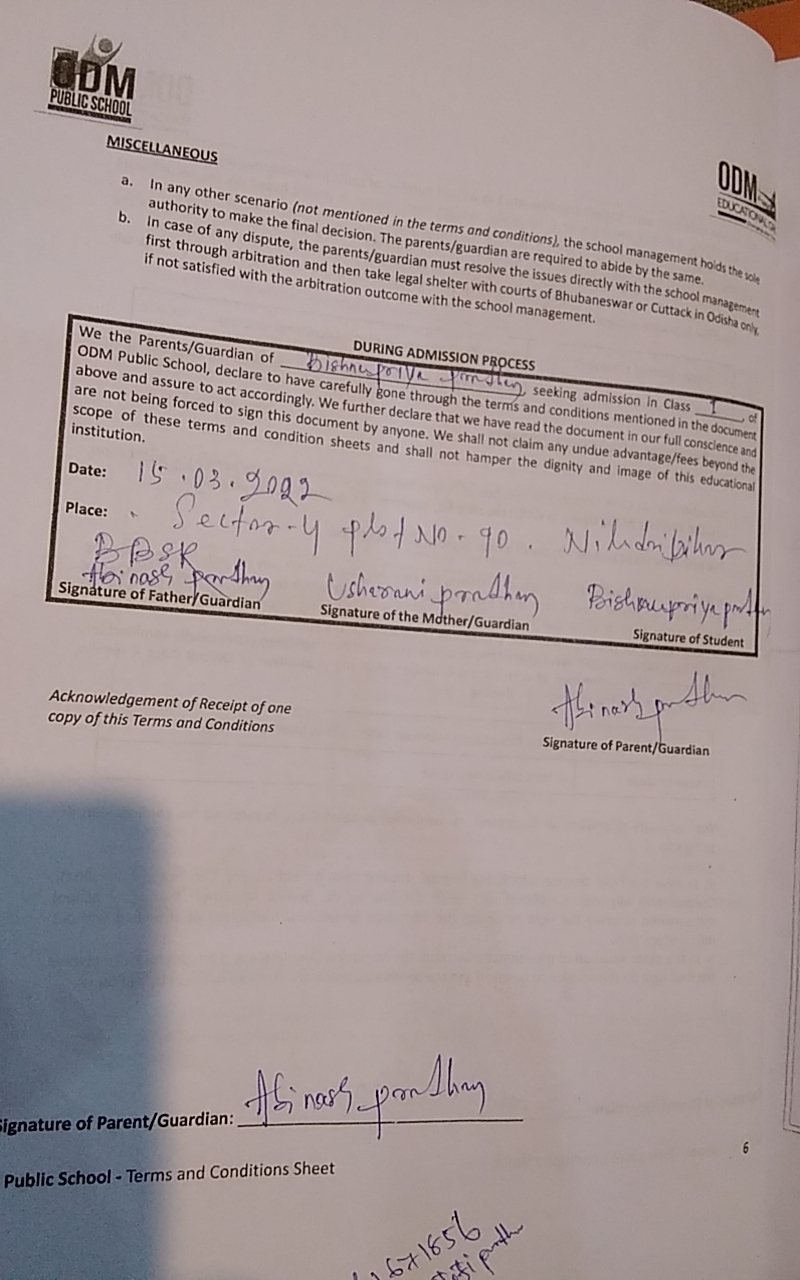 ODM
PUBLIC SCHOOL
ODM
EDUCATIONAL
MISCELLANEOUS
a. In any other scenario (not mentioned in the terms and conditions), the school management holds the sole
authority to make the final decision. The parents/guardian are required to abide by the same.
b. In case of any dispute, the parents/guardian must resolve the issues directly with the school management
first through arbitration and then take legal shelter with courts of Bhubaneswar or Cuttack in Odisha only,
if not satisfied with the arbitration outcome with the school management.
DURING ADMISSION PROCESS
We the Parents/Guardian of Bishnupriya pradhan, seeking admission in Class I, of
ODM Public School, declare to have carefully gone through the terms and conditions mentioned in the document
above and assure to act accordingly. We further declare that we have read the document in our full conscience and
are not being forced to sign this document by anyone. We shall not claim any undue advantage/fees beyond the
scope of these terms and condition sheets and shall not hamper the dignity and image of this educational
institution.
Date: 15.03.2022
Place: Sector-4 plot No-90. Niladribihar
BBSR
Abinash pradhan Usharani pradhan Bishnupriya pradhan
Signature of Father/Guardian Signature of the Mother/Guardian Signature of Student
Abinash pradhan
Acknowledgement of Receipt of one
copy of this Terms and Conditions
Signature of Parent/Guardian
Signature of Parent/Guardian: Abinash pradhan
6
Public School - Terms and Conditions Sheet
671856